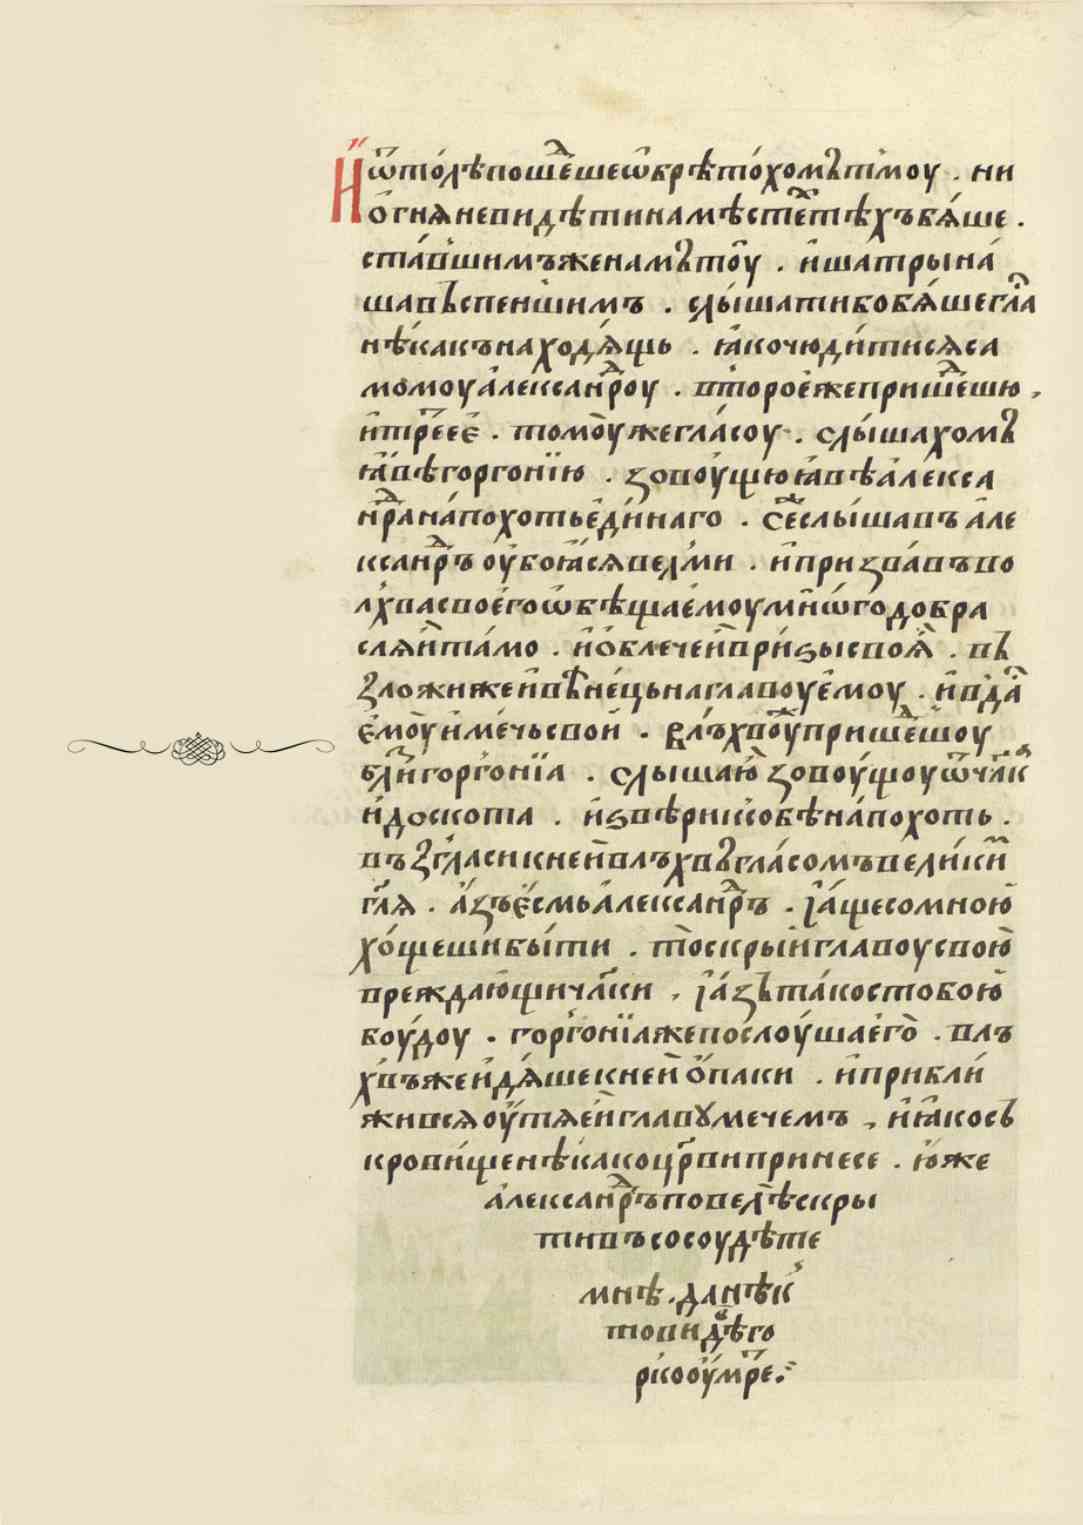 И҆ ѿтолѣ пошеⷣше ѡбрѣтохомъ тмоу . ни
ѻгня не видѣти на мѣстеⷯ тѣхъ бѧше .
ставшимъ же намъ тоу . и шатры на
ша въспеншимъ . слышати бо бѧше глаⷭ
нѣкакъ находѧщь . ꙗко чюдитисѧ са
момоу алексанⷣроу . второе же пришеⷣшю ,
и треⷮее . томоу же гласоу . слышахомъ
ꙗвѣ горгонїю . зовоущю ꙗвѣ алекса
нⷣра на похоть единаго . се же слышавъ але
ксанⷣръ оубоꙗсѧ велми . и призвавъ во
лхва своего ѡбѣщаемоу мнѡго добра
слѧ и тамо . и ѻблече и в ризы своѧ . въ
зложи же и вѣнець на главоу емоу . и вдаⷭ
емоу и мечь свои . влъхвоуⷤ пришеⷣшоу
близⸯ горгонїа . слышаⸯ ю зовоущоу ѿ члк
и до скота . и ѕвѣри к собѣ на похоть .
възгласи к неи влъхвъ гласомъ великиⷨ
гл҃ѧ . азъ есмь алексанⷣръ . ꙗ аще со мною
хощеши быти . то скрыи главоу свою
преждающи чл҃ки , ꙗ азъ тако с тобою
боудоу . горгонїа же послоуша его . влъ
хвъ же идѧше к неи опаки . и прибли
живсѧ оутѧ еи главꙋ мечемъ , и ꙗко съ
кровище нѣкако цр҃ви принесе . юже
алексанⷣръ повелѣ скры
ти въ сосоудѣ те
мнѣ . да нѣкⷮ
то видѣ го
рко оумⷬре .: